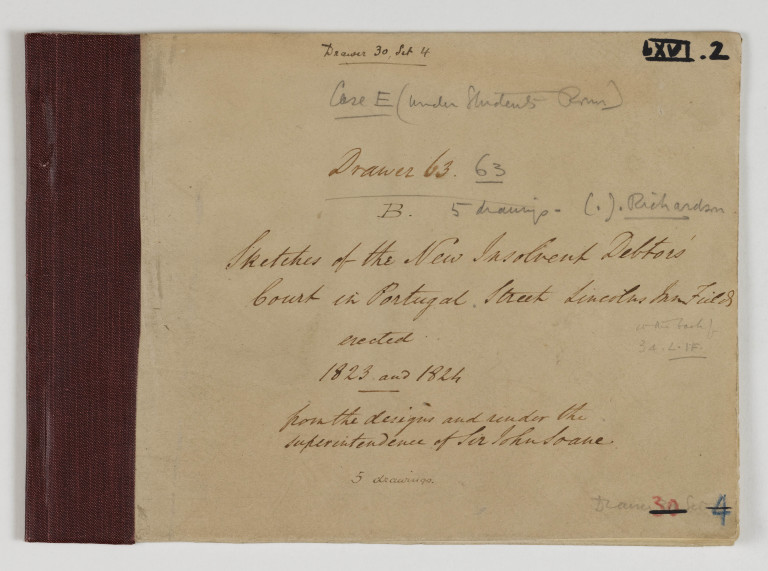 Drawer 30, Set 4
LXVI.2
Case E (under Students Room)
Drawer 63. 63
B. 5 drawings. C.J. Richardson
Sketches of the New Insolvent Debtors'
Court in Portugal Street Lincolns Inn Fields
erected
3d. L.I.F.
1823 and 1824
from the designs and under the
superintendence of Sir John Soane.
5 drawings.
Drawer 30 Set 4